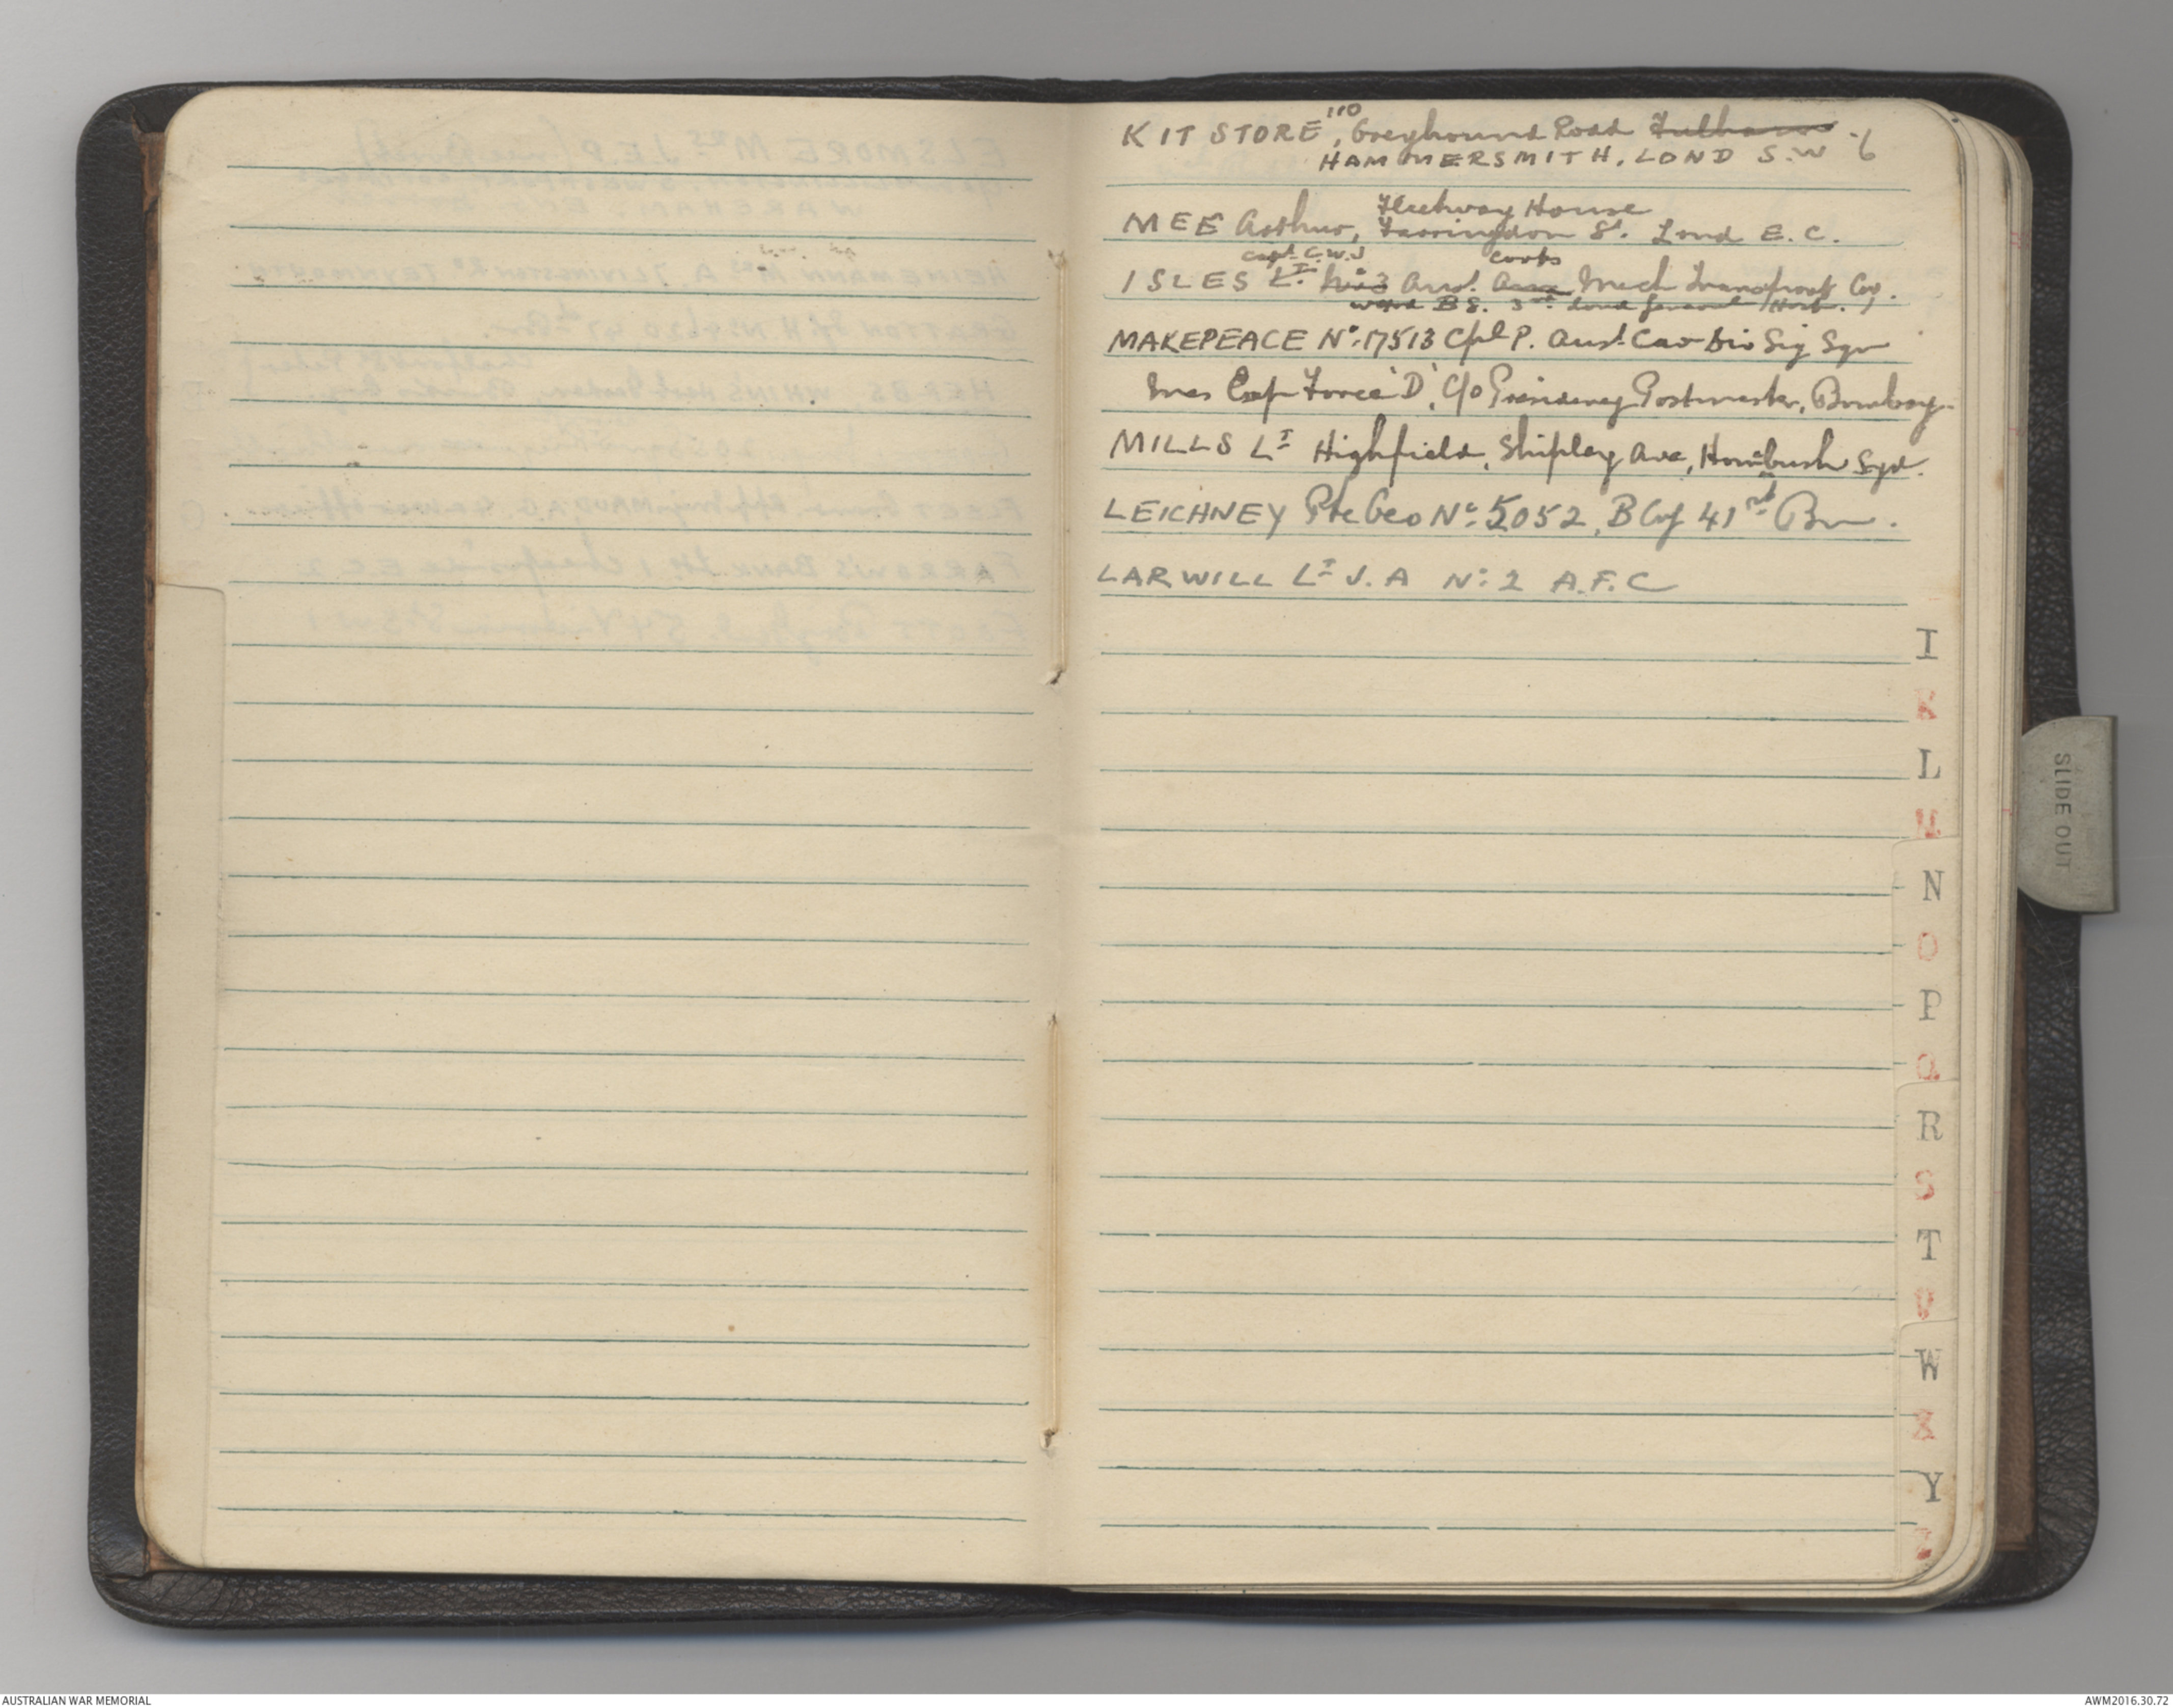 KIT STORE, 110 Greyhound Road Fulham
HAMMERSMITH, LOND S.W 6
Fleetway House
MEE Arthur, Farringdon St. Lond E.C.
Capt C.W.J Corps
ISLES Lt. No 3 Aust. Mech Transport Coy.
Ward B8. 3rd Lond General Hosp.
MAKEPEACE No. 17513 Cpl P. Aust Cav Div Sig Sqn
Mes Exp Force 'D', C/o Presidency Postmaster, Bombay.
MILLS Lt Highfield, Shipley Ave, Hombush Syd.
LEICHNEY Pte Geo No. 5052, B Coy 41st Bn.
LARWILL Lt J.A No. 2 A.F.C
I
K
L
M
N
O
P
Q
R
S
T
W
X
Y
Z
SLIDE OUT
AUSTRALIAN WAR MEMORIAL
AWM2016.30.72